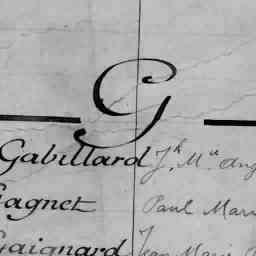 G
Gabillard Jh. Mie Ang
Gagnet Paul Mari
Gaignard Jean Marie